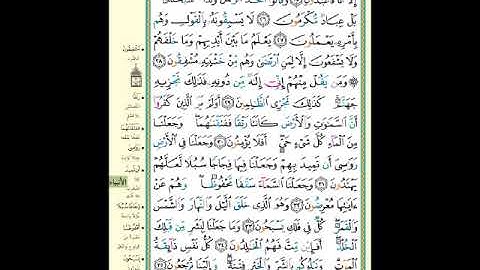 بَلْ عِبَادٌ مُّكْرَمُونَ ٢٦ لَا يَسْبِقُونَهُۥ بِٱلْقَوْلِ وَهُم
بِأَمْرِهِۦ يَعْمَلُونَ ٢٧ يَعْلَمُ مَا بَيْنَ أَيْدِيهِمْ وَمَا خَلْفَهُمْ
وَلَا يَشْفَعُونَ إِلَّا لِمَنِ ٱرْتَضَىٰ وَهُم مِّنْ خَشْيَتِهِۦ مُشْفِقُونَ ٢٨
وَمَن يَقُلْ مِنْهُمْ إِنِّىٓ إِلَٰهٌ مِّن دُونِهِۦ فَذَٰلِكَ نَجْزِيهِ
جَهَنَّمَ كَذَٰلِكَ نَجْزِى ٱلظَّٰلِمِينَ ٢٩ أَوَلَمْ يَرَ ٱلَّذِينَ كَفَرُوٓا۟
أَنَّ ٱلسَّمَٰوَٰتِ وَٱلْأَرْضَ كَانَتَا رَتْقًا فَفَتَقْنَٰهُمَا وَجَعَلْنَا
مِنَ ٱلْمَآءِ كُلَّ شَىْءٍ حَىٍّ أَفَلَا يُؤْمِنُونَ ٣٠ وَجَعَلْنَا فِى ٱلْأَرْضِ
رَوَٰسِىَ أَن تَمِيدَ بِهِمْ وَجَعَلْنَا فِيهَا فِجَاجًا سُبُلًا لَّعَلَّهُمْ
يَهْتَدُونَ ٣١ وَجَعَلْنَا ٱلسَّمَآءَ سَقْفًا مَّحْفُوظًا وَهُمْ عَنْ
ءَايَٰتِهَا مُعْرِضُونَ ٣٢ وَهُوَ ٱلَّذِى خَلَقَ ٱلَّيْلَ وَٱلنَّهَارَ وَٱلشَّمْسَ
وَٱلْقَمَرَ كُلٌّ فِى فَلَكٍ يَسْبَحُونَ ٣٣ وَمَا جَعَلْنَا لِبَشَرٍ مِّن قَبْلِكَ
ٱلْخُلْدَ أَفَإِي۟ن مِّتَّ فَهُمُ ٱلْخَٰلِدُونَ ٣٤ كُلُّ نَفْسٍ ذَآئِقَةُ
ٱلْمَوْتِ وَنَبْلُوكُم بِٱلشَّرِّ وَٱلْخَيْرِ فِتْنَةً وَإِلَيْنَا تُرْجَعُونَ ٣٥
الأنبياء